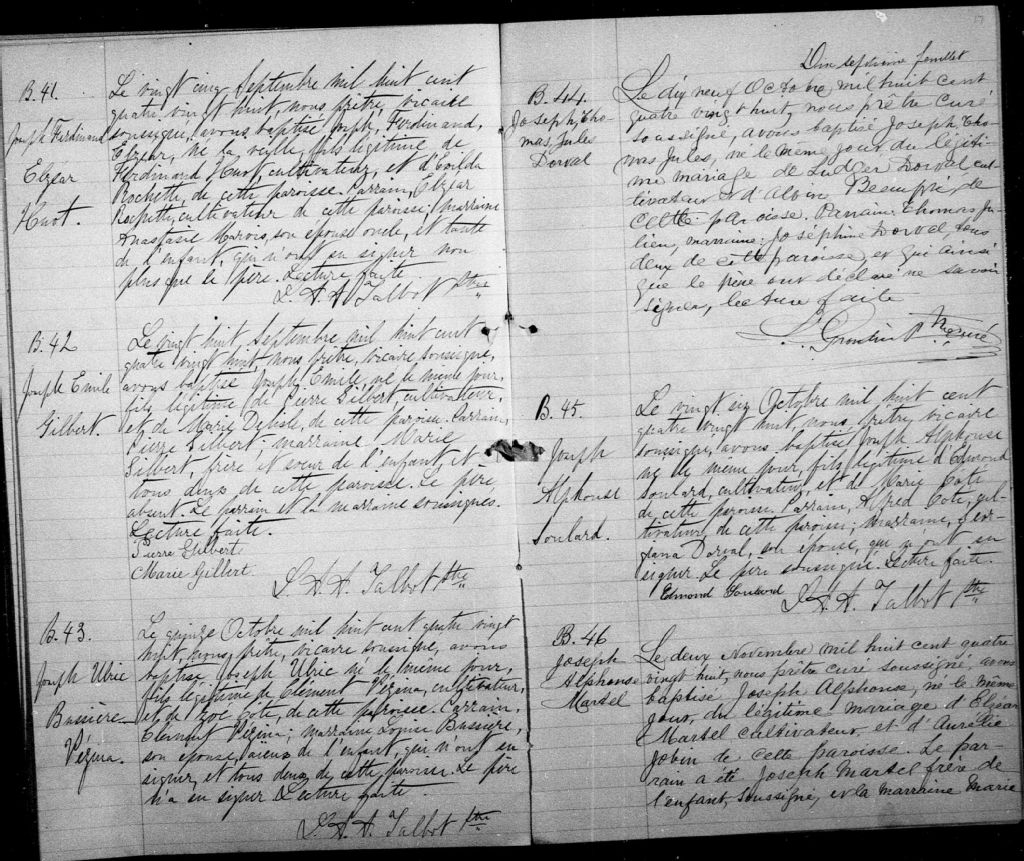 B. 41.
Joseph Ferdinand
Elzéar
Huot.
Le vingt cinq Septembre mil huit cent
quatre vingt huit, nous prêtre, vicaire
soussigné, avons baptisé Joseph, Ferdinand,
Elzéar, né la veille, fils légitime de
Ferdinand Huot, cultivateur, et d'Exilda
Rochette, de cette paroisse. Parrain, Elzéar
Rochette, cultivateur de cette paroisse; marraine
Anastasie Marois, son épouse oncle, et tante
de l'enfant, qui n'ont su signer non
plus que le père. Lecture faite.
L. A. A. Talbot Ptre
B. 42
Joseph Emile
Gilbert.
Le vingt huit, septembre mil huit cent
quatre vingt huit, nous prêtre, vicaire soussigné,
avons baptisé Joseph, Emile, né le même jour,
fils légitime de Pierre Gilbert, cultivateur,
et de Marie Delisle, de cette paroisse. Parrain,
Pierre Gilbert marraine Marie
Gilbert, frère et soeur de l'enfant, et
tous deux de cette paroisse. Le père
absent. Le parrain et la marraine soussignés.
Lecture faite.
Pierre Gilbert
Marie Gilbert.
L. A. A. Talbot Ptre
B. 43.
Joseph Ulric
Bussière
Vézina.
Le quinze Octobre mil huit cent quatre vingt
huit, nous, prêtre, vicaire soussigné, avons
baptisé Joseph Ulric né le même jour,
fils légitime de Clément Vézina, cultivateur,
et de Zoé Côté, de cette paroisse. Parrain,
Clément Vézina; marraine Louise Bussière,
son épouse, aïeux de l'enfant, qui n'ont su
signer, et tous deux de cette paroisse. Le père
n'a su signer Lecture faite.
L. A. A. Talbot Ptre
17
Dix septième feuillet
B. 44.
Joseph, Tho-
mas, Jules
Dorval
Le dix neuf Octobre mil huit cent
quatre vingt huit, nous prêtre curé
soussigné, avons baptisé Joseph, Tho-
mas Jules, né le même jour du légiti-
me mariage de Ludger Dorval cul-
tivateur et d'Albin Beaupré de
cette paroisse. Parrain: Thomas Ju-
lien, marraine: Joséphine Dorval tous
deux de cette paroisse, et qui ainsi
que le père ont déclaré ne savoir
signer, lecture faite
B. 45.
Joseph
Alphonse
Soulard.
Le vingt six Octobre mil huit cent
quatre vingt huit, nous, prêtre, vicaire
soussigné, avons baptisé Joseph Alphonse
né le même jour, fils légitime d'Edmond
Soulard, cultivateur, et de Marie Côté
de cette paroisse. Parrain, Alfred Côté, cul-
tivateur, de cette paroisse; marraine,
Dorval, son épouse, qui n'ont su
signer. Le père soussigné. Lecture faite.
Edmond Soulard
L. A. A. Talbot Ptre
B. 46
Joseph
Alphonse
Martel
Le deux Novembre mil huit cent quatre
vingt huit, nous prêtre curé soussigné, avons
baptisé Joseph Alphonse, né le même
jour, du légitime mariage d'Elzéar
Martel cultivateur, et d'Aurélie
Jobin de cette paroisse. Le par-
rain a été Joseph Martel frère de
l'enfant, soussigné, et la marraine Marie